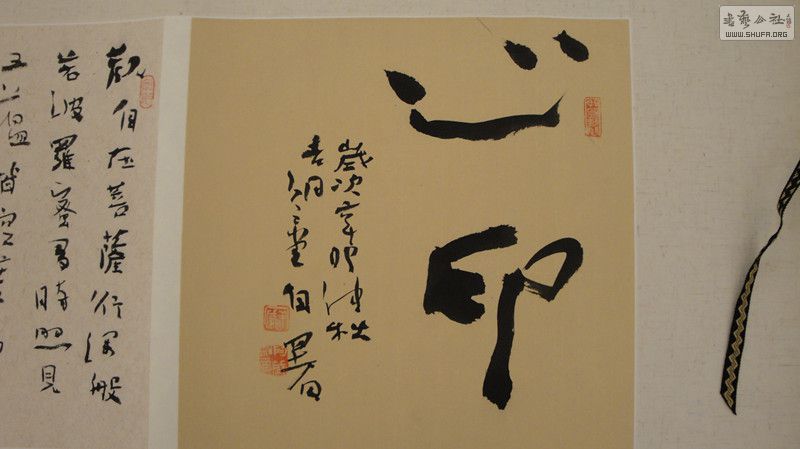 書藝公社
WWW.SHUFA.ORG
心印
歲次辛卯仲秋
自署
觀自在菩薩行深般
若波羅蜜多時照見
五蘊皆空度